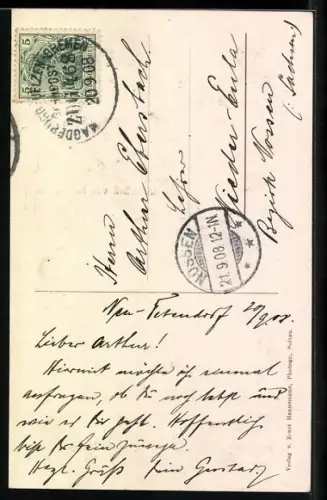 5 5
MAGDEBURG UELZEN BREMEN
BAHNPOST
ZUG 168
20 9 08
Herrn
Arthur Ebersbach
Lehrer
Nieder-Eula
Bezirk Nossen
(Sachsen)
NOSSEN
21.9.08 12-1N
Neu-Tetendorf 20/9.08.
Lieber Arthur!
Hiermit möchte ich einmal
anfragen, ob du noch lebst und
wie es dir geht. Hoffentlich
bist du
Herzl. Grüße Dein Gustav
Verlag v. Ernst Hannemann, Photogr., Soltau.